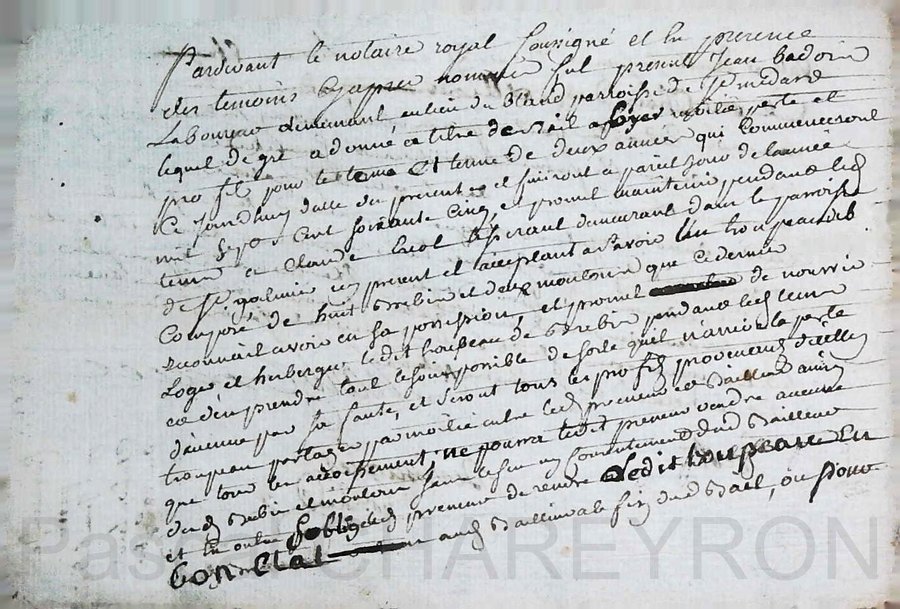 Pardevant le notaire royal soussigné et en presence
des temoins cy apres nommés fut present Jean badoin
Laboureur demeurant au lieu du bland parroisse de St medard
lequel de gré a donné a titre de Bail a
pro fit pour le tems et terme de deux années qui commenceront
Ce jourdhuy datte du present et finiront a pareil jour de lannée
mil Sept Cent soixante Cinq, et promet maintenir pendant led
terme a Claude demeurant dans la parroisse
de St galmier icy present et acceptant a Savoir un troupeau de b
Composé de huit Brebis et deux moutons que Ce dernier
reconnoit avoir en sa possession, et promet de nourrir
Loger et heberger ledit troupeau de Brebis pendant led terme
et den prendre tout le soin possible de sorte quil narrive la perte
daucune par sa faute, et seront tous les profits provenus dudit
troupeau partagés par moitié entre led preneur et Bailleur ainsy
que tout le accroissement, ne pourra ledit preneur vendre aucune
dud Brebis et moutons sans le consentement dud Bailleur
et en outre soblige led preneur de rendre Ledit troupeau En
bon Etat aud Bailleur a la fin dud Bail, ou pour
Pascal CHAREYRON